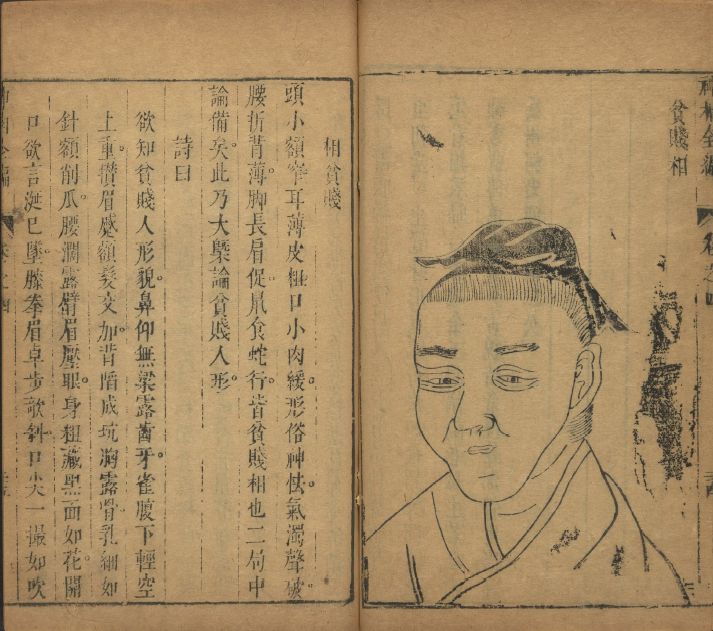 神相全編
卷之四
貧賤相
相貧賤
頭小額窄耳薄皮粗口小肉緩。形俗神怯。氣濁聲破。
腰折背薄。脚長肩促。鼠食蛇行。皆貧賤相也二句中
論備矣。此乃大槩論貧賤人形。
詩曰
欲知貧賤人形貌。鼻仰無梁露齒牙。雀腹下輕空
上重。攢眉蹙額髮交加。背脂成坑胸露骨。乳細如
針額削瓜。腰濶露臂眉壓眼。身粗藏黑面如花。開
口欲言涎已墜。膝拳眉卓步欹斜口尖一撮如吹